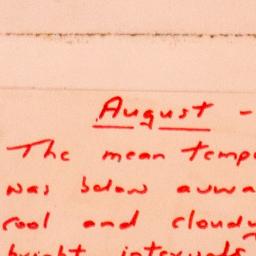 August -
The mean tempe
was below avera
cool and cloudy
bright intervals